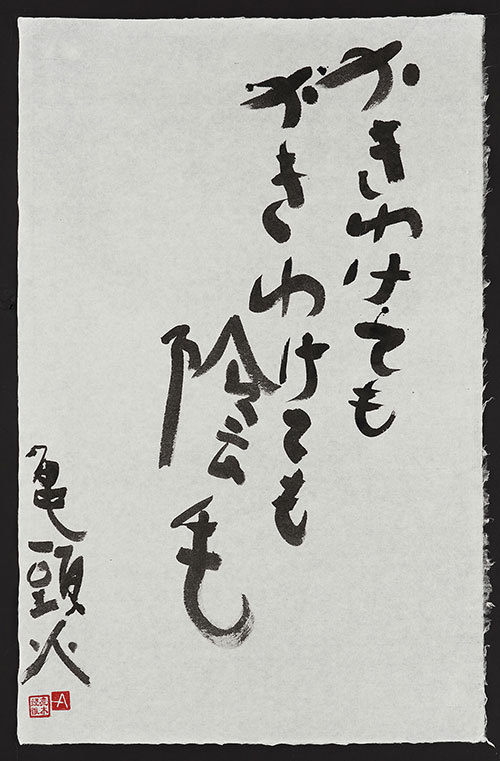 かきわけても
かきわけても
陰毛
亀頭火
A